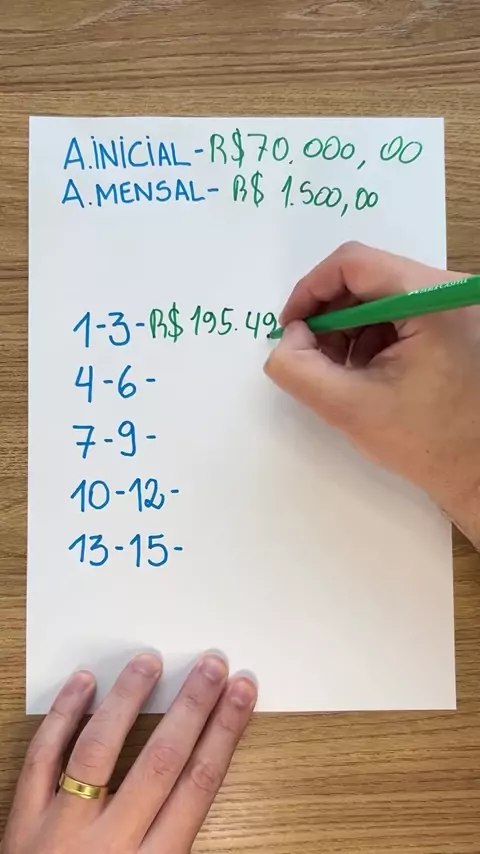 A.INICIAL-R$70.000,00
A.MENSAL- R$ 1.500,00
1-3-R$ 195.49
4-6-
7-9-
10-12-
13-15-